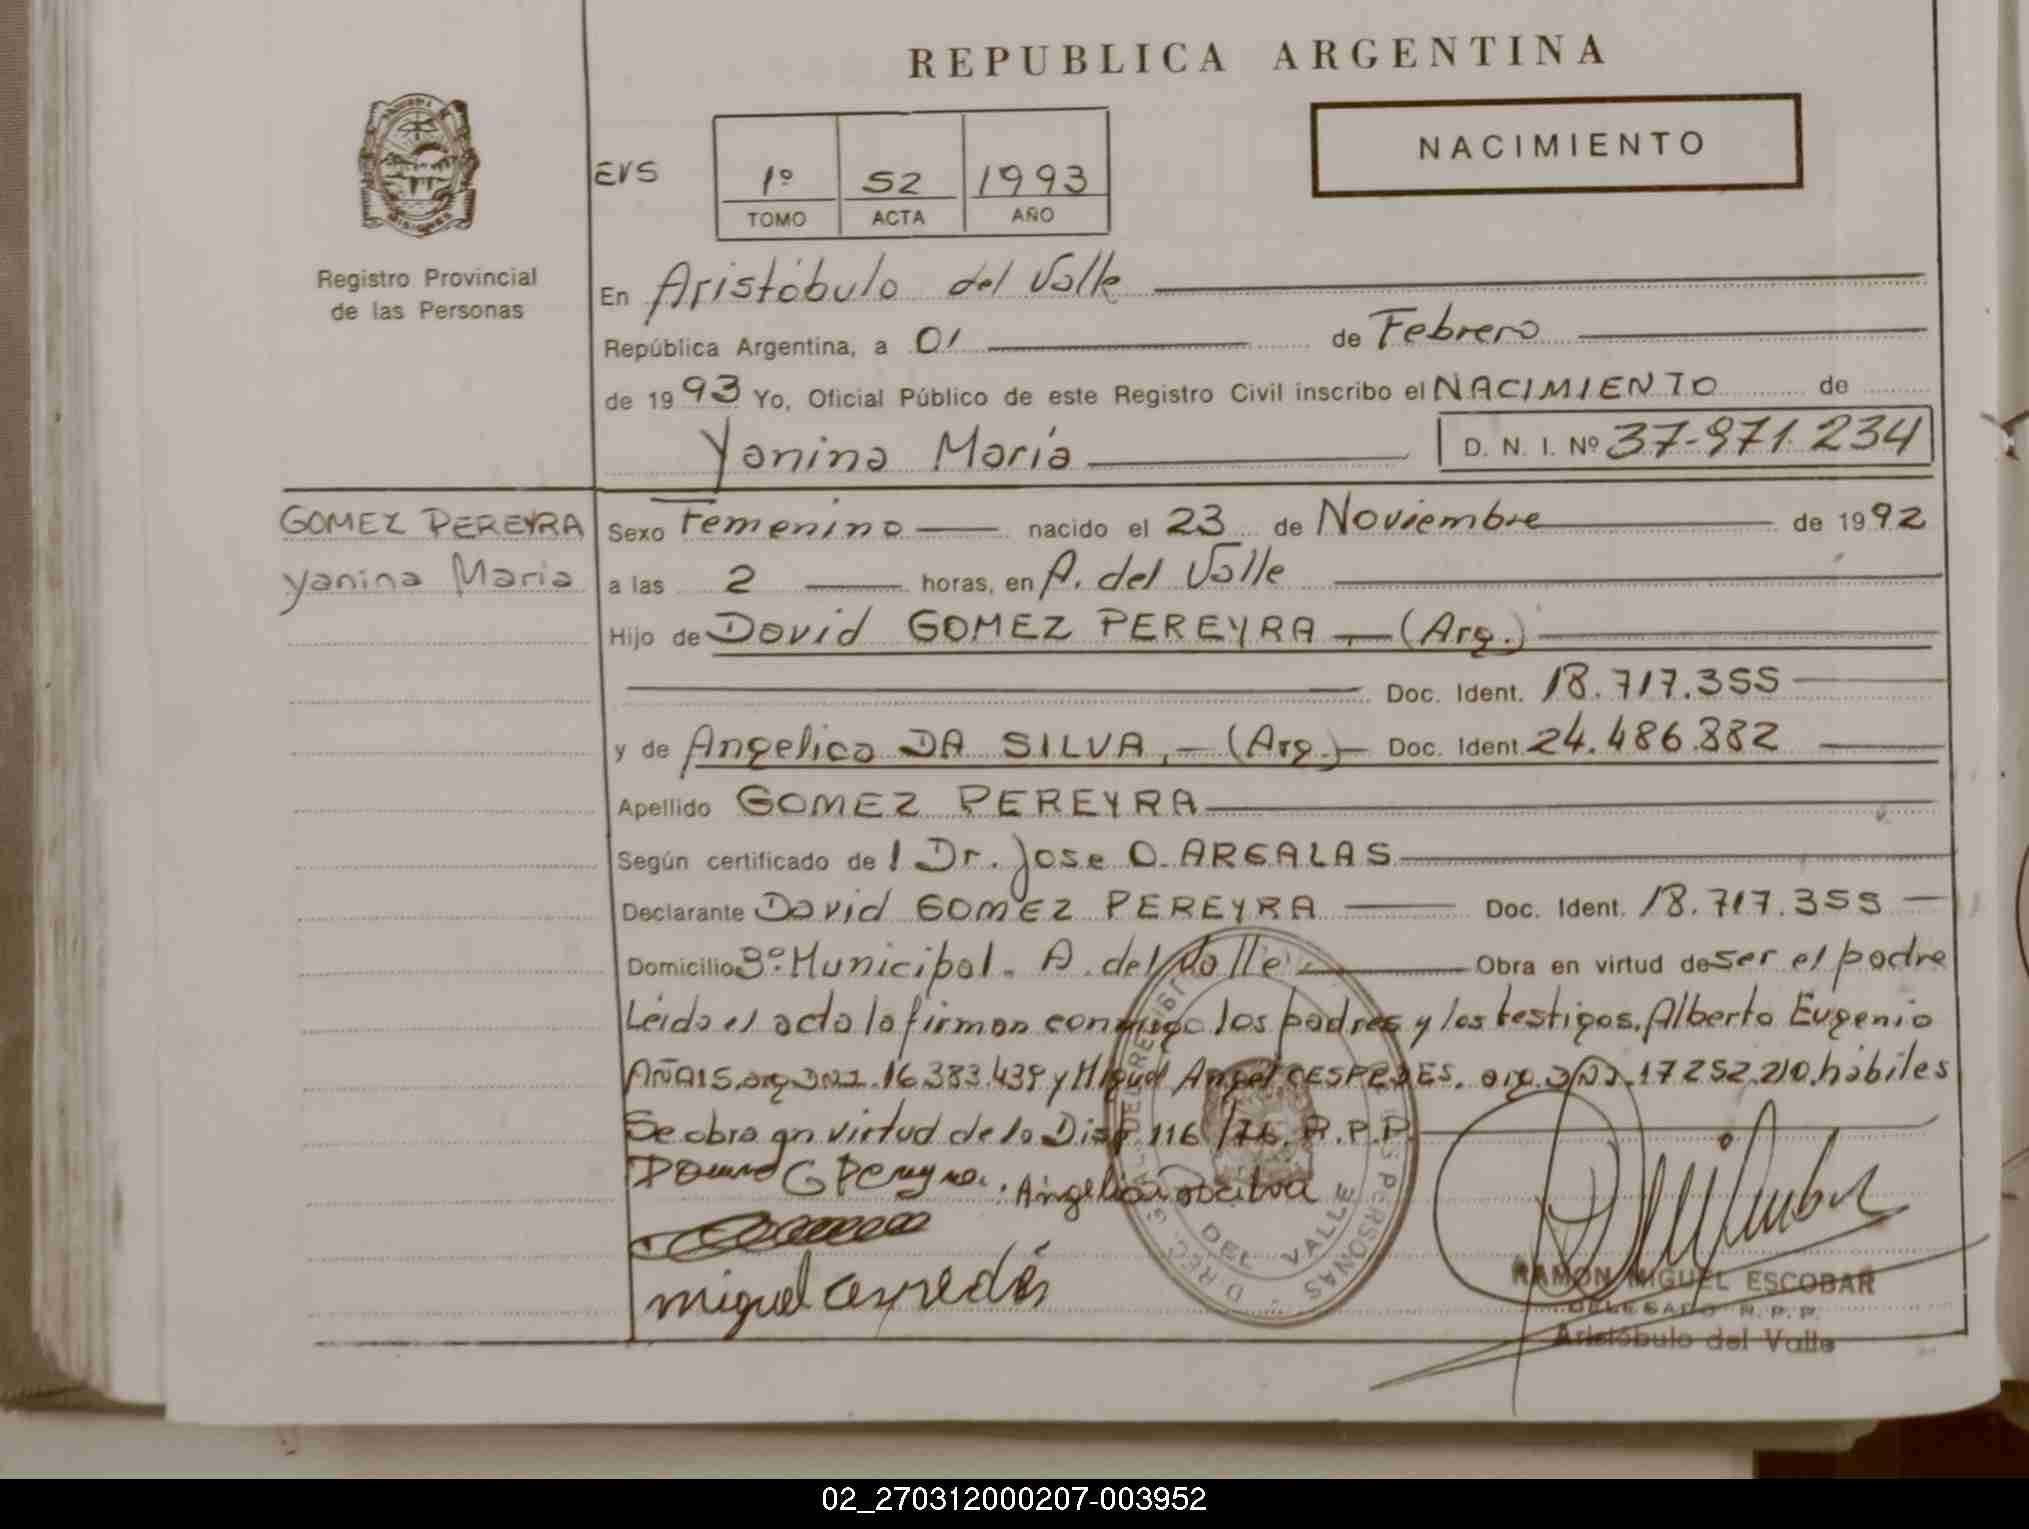 REPUBLICA ARGENTINA
NACIMIENTO
EVS
1º 52 1993
TOMO ACTA AÑO
Registro Provincial
de las Personas
En Aristóbulo del Valle
República Argentina, a 01 de Febrero
de 1993 Yo, Oficial Público de este Registro Civil inscribo el NACIMIENTO de
Yanina María D. N. I. Nº 37-971.234
GOMEZ PEREYRA
Yanina Maria
Sexo Femenino nacido el 23 de Noviembre de 1992
a las 2 horas, en A. del Valle
Hijo de David GOMEZ PEREYRA, (Arg.)
Doc. Ident. 18.717.355
y de Angelica DA SILVA, (Arg.) Doc. Ident. 24.486.882
Apellido GOMEZ PEREYRA
Según certificado de l Dr. Jose O. ARGALAS
Declarante David GOMEZ PEREYRA Doc. Ident. 18.717.355
Domicilio Bº Municipal. A. del Valle Obra en virtud de ser el padre
Leida el acta la firman conmigo los padres y los testigos, Alberto Eugenio
AÑAIS, arg. DNI. 16.383.439 y Miguel Angel CESPEDES, arg. DNI. 17.252.210, hábiles
Se obra en virtud de la Disp 116/76. R.P.P.
Angelica Dasilva
DEL VALLE
miguel cespedes
RAMON MIGUEL ESCOBAR
DELEGADO R. P. P.
Aristóbulo del Valle
02_270312000207-003952